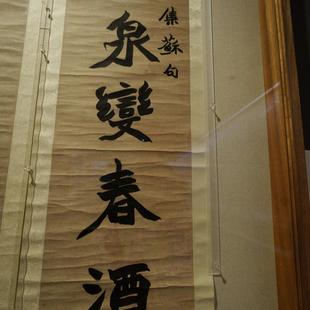 集蘇句
泉變春酒